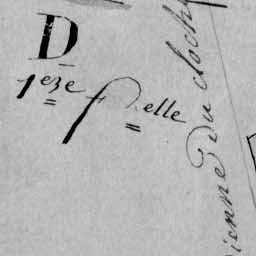 D
1eze f elle
ienne du cloch